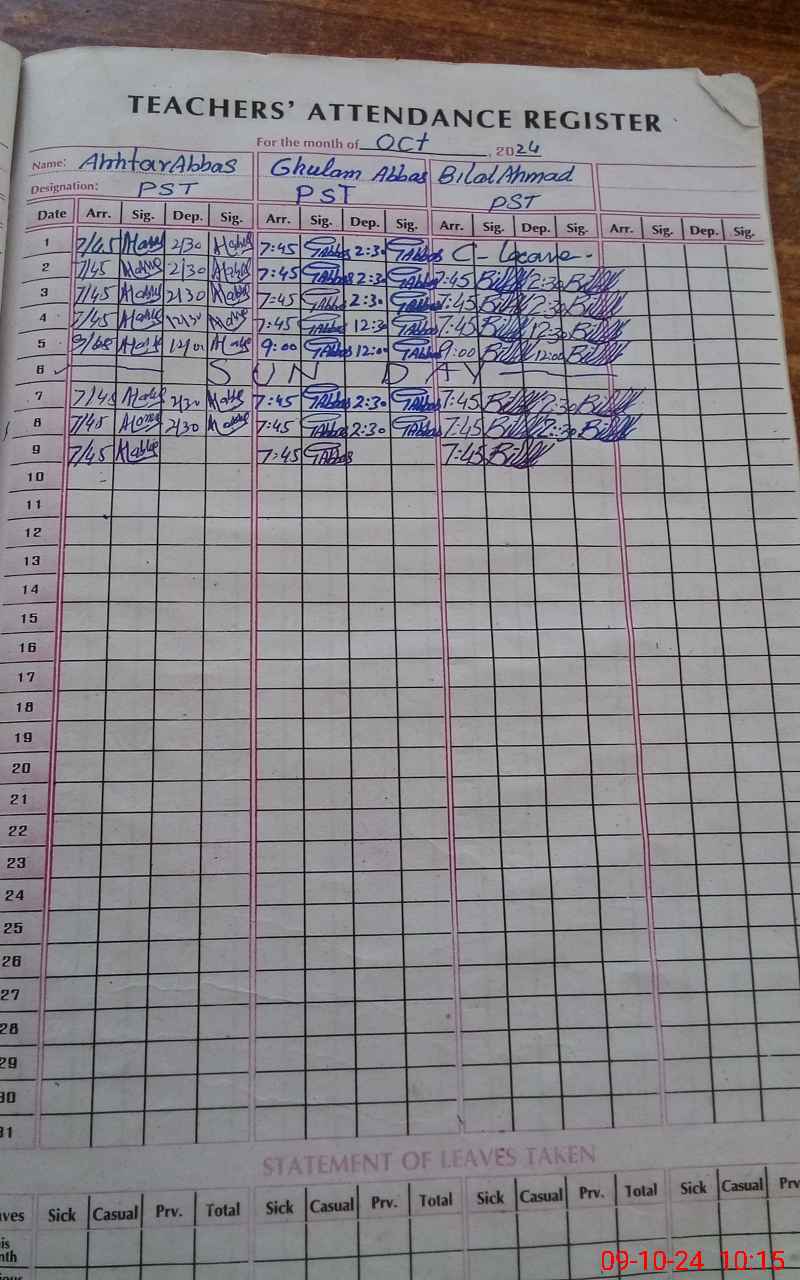 TEACHERS' ATTENDANCE REGISTER
For the month of Oct, 2024
Name: Akhtar Abbas Ghulam Abbas Bilal Ahmad
Designation: PST PST PST
Date Arr. Sig. Dep. Sig. Arr. Sig. Dep. Sig. Arr. Sig. Dep. Sig. Arr. Sig. Dep. Sig.
1 7/45 2/30 7:45 GAbbas 2:30 GAbbas C-Leave.
2 7/45 2/30 7:45 GAbbas 2:30 GAbbas 7:45 Bilal 2:30 Bilal
3 7/45 2/30 7:45 GAbbas 2:30 GAbbas 7:45 Bilal 2:30 Bilal
4 7/45 12/30 7:45 GAbbas 12:30 GAbbas 7:45 Bilal 12:30 Bilal
5 12/00 9:00 GAbbas 12:00 GAbbas 9:00 Bilal 12:00 Bilal
6 SUNDAY
7 7/45 2/30 7:45 GAbbas 2:30 GAbbas 7:45 Bilal 2:30 Bilal
8 7/45 2/30 7:45 GAbbas 2:30 GAbbas 7:45 Bilal 2:30 Bilal
9 7/45 7:45 GAbbas 7:45 Bilal
10
11
12
13
14
15
16
17
18
19
20
21
22
23
24
25
26
27
28
29
30
31
STATEMENT OF LEAVES TAKEN
aves Sick Casual Prv. Total Sick Casual Prv. Total Sick Casual Prv. Total Sick Casual Prv
is
nth
09-10-24 10:15